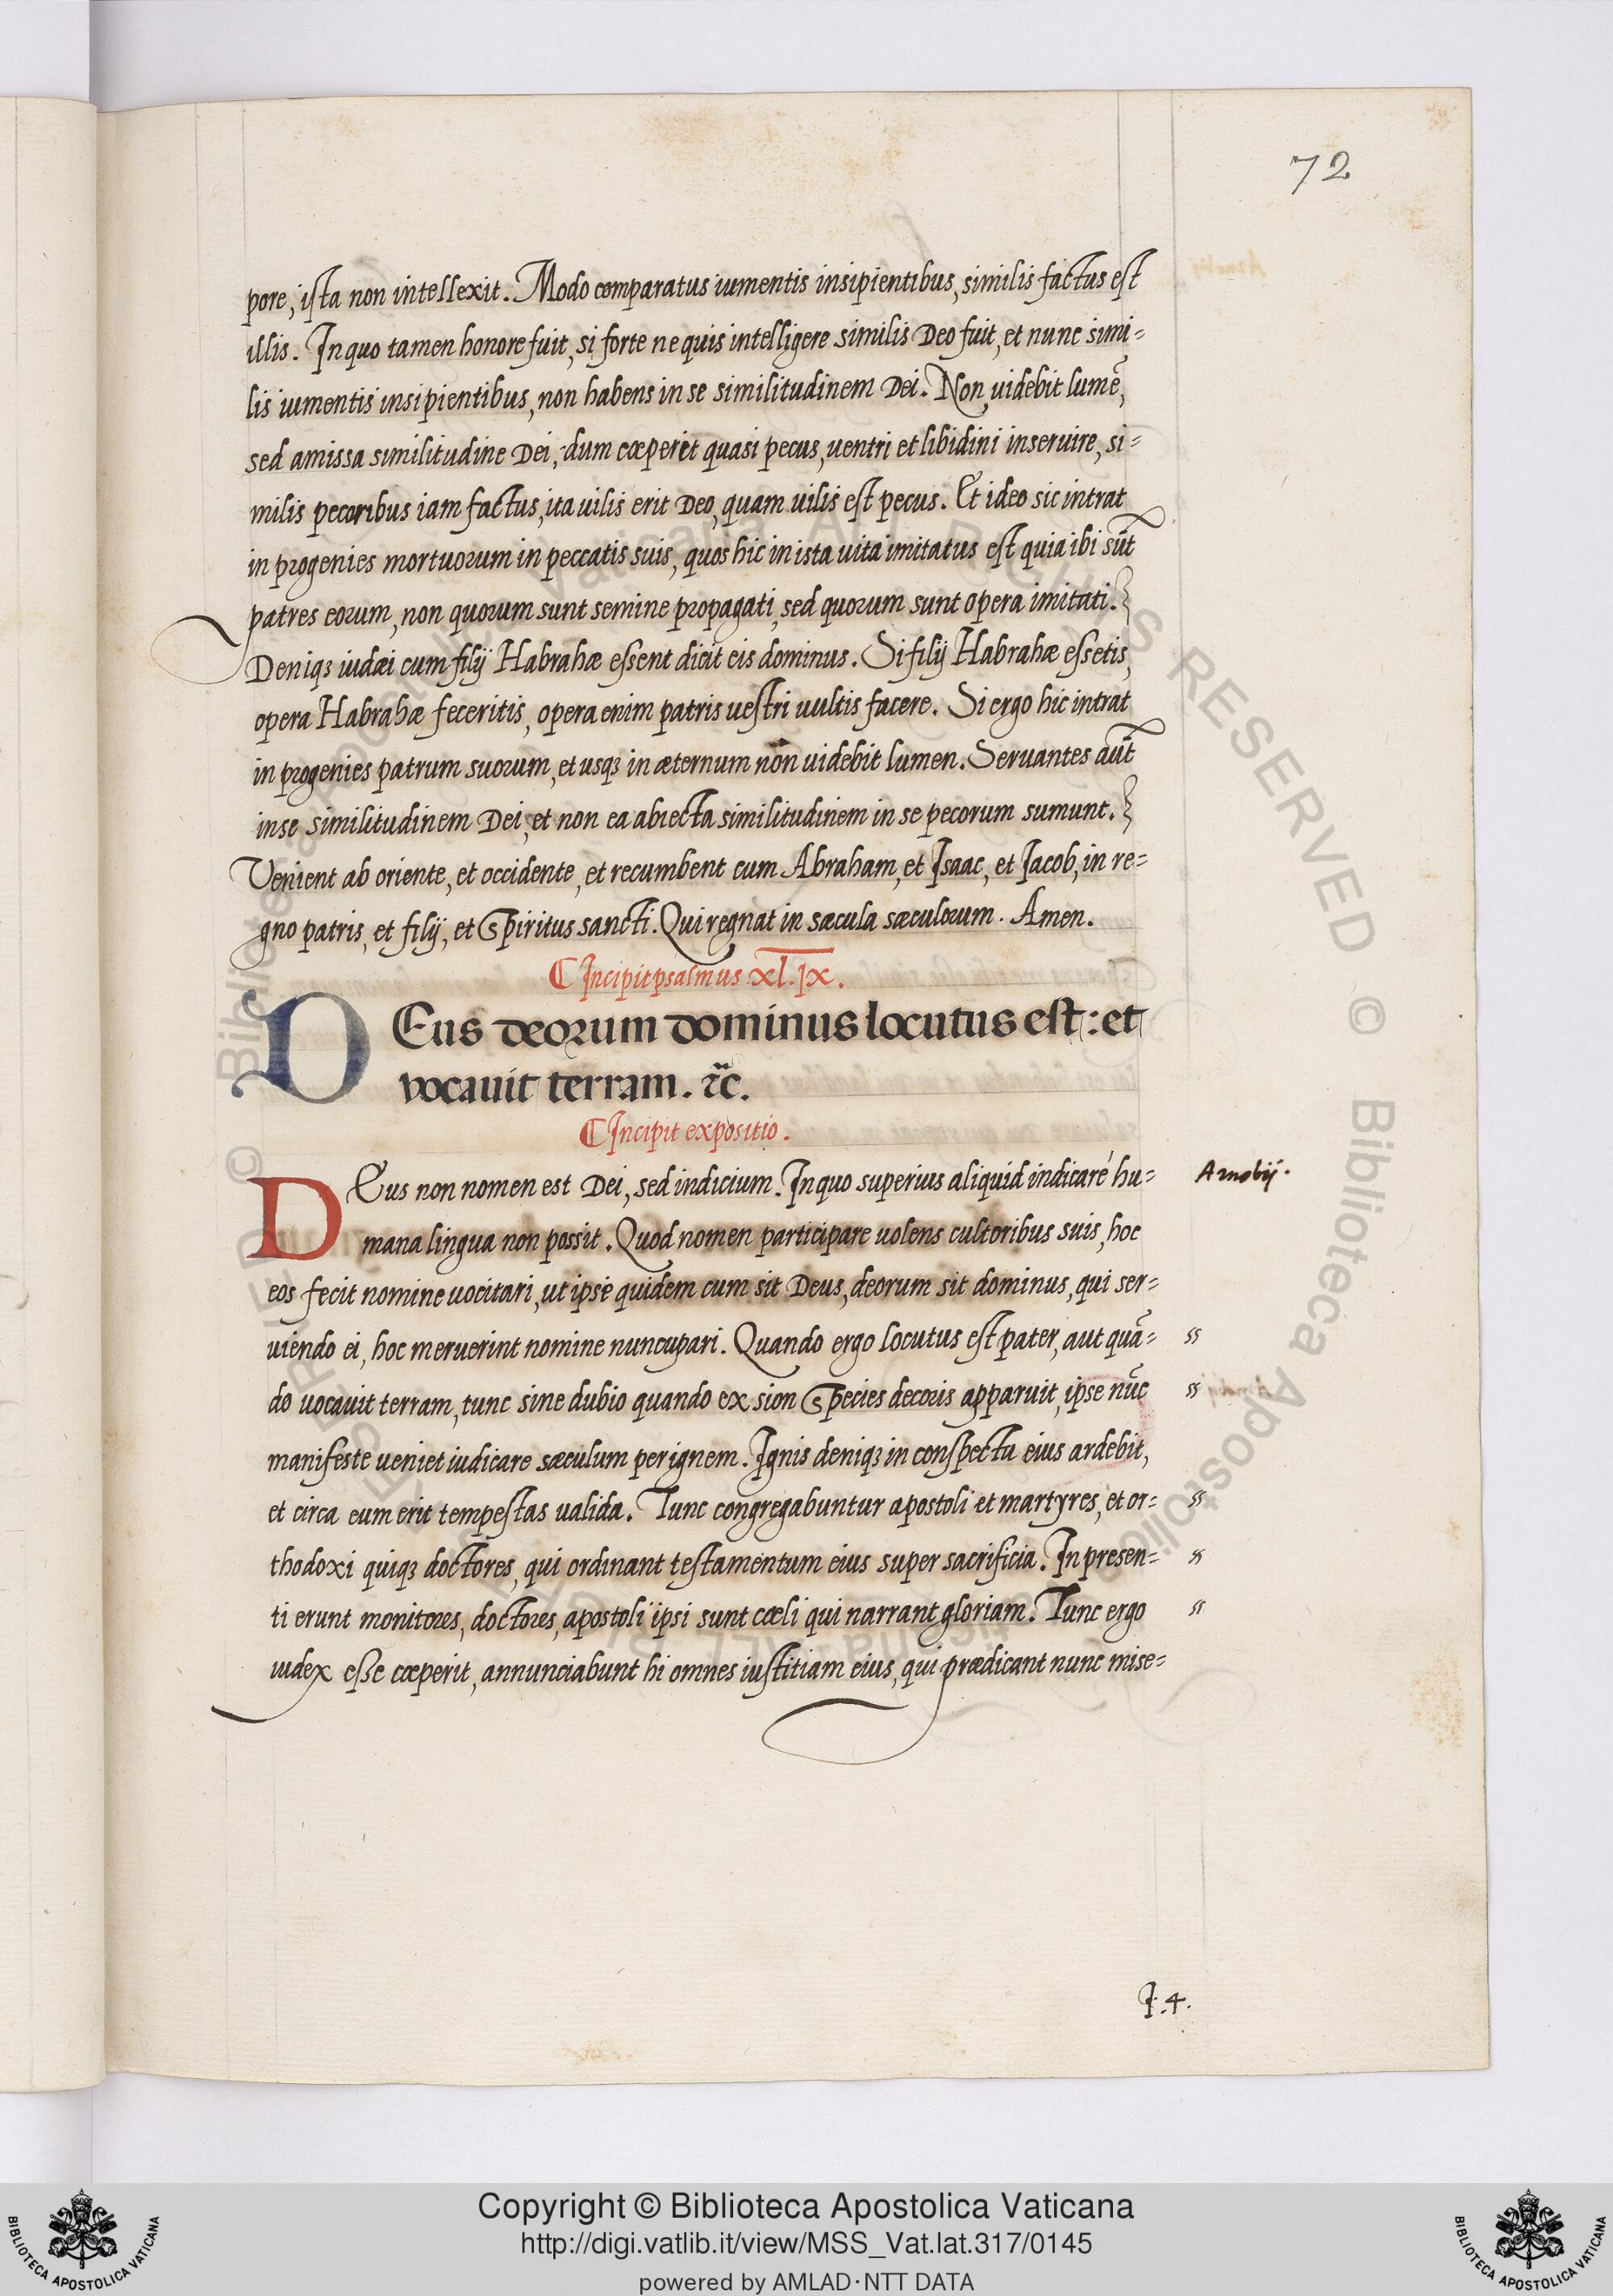 72
pore, ista non intellexit. Modo comparatus iumentis insipientibus, similis factus est
illis. In quo tamen honore fuit, si forte ne quis intelligere similis Deo fuit, et nunc simi=
lis iumentis insipientibus, non habens in se similitudinem Dei. Non uidebit lumē,
sed amissa similitudine Dei, dum cæperit quasi pecus, uentri et libidini inseruire, si=
milis pecoribus iam factus, ita uilis erit Deo, quam uilis est pecus. Et ideo sic intrat
in progenies mortuorum in peccatis suis, quos hic in ista uita imitatus est quia ibi sūt
patres eorum, non quorum sunt semine propagati, sed quorum sunt opera imitati.
Deniqꝫ iudæi cum filij Habrahæ essent dicit eis dominus. Si filij Habrahæ essetis,
opera Habrahæ feceritis, opera enim patris uestri uultis facere. Si ergo hic intrat
in progenies patrum suorum, et usqꝫ in æternum non uidebit lumen. Seruantes aūt
in se similitudinem Dei, et non ea abiecta similitudinem in se pecorum sumunt.
Venient ab oriente, et occidente, et recumbent cum Abraham, et Isaac, et Iacob, in re=
gno patris, et filij, et Spiritus sancti. Qui regnat in sæcula sæculorum. Amen.
Incipit psalmus xl.ix.
DEus deorum dominus locutus est: et
vocauit terram. ⁊c̃.
Incipit expositio.
DEus non nomen est Dei, sed indicium. In quo superius aliquid indicare hu=
Arnobij.
mana lingua non possit. Quod nomen participare uolens cultoribus suis, hoc
eos fecit nomine uocitari, ut ipse quidem cum sit Deus, deorum sit dominus, qui ser=
uiendo ei, hoc meruerint nomine nuncupari. Quando ergo locutus est pater, aut quā=
do uocauit terram, tunc sine dubio quando ex sion Species decoris apparuit, ipse nūc
manifeste ueniet iudicare sæculum per ignem. Ignis deniqꝫ in conspectu eius ardebit,
et circa eum erit tempestas ualida. Tunc congregabuntur apostoli et martyres, et or=
thodoxi quiqꝫ doctores, qui ordinant testamentum eius super sacrificia. In presen=
ti erunt monitores, doctores, apostoli ipsi sunt cæli qui narrant gloriam. Tunc ergo
iudex esse cæperit, annunciabunt hi omnes iustitiam eius, qui prædicant nunc mise=
I.4.
Copyright © Biblioteca Apostolica Vaticana
http://digi.vatlib.it/view/MSS_Vat.lat.317/0145
powered by AMLAD·NTT DATA
BIBLIOTECA APOSTOLICA VATICANA
BIBLIOTECA APOSTOLICA VATICANA